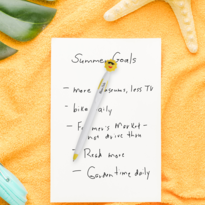 Summer Goals
- more museums, less TV
- bike daily
- Farmer's Market -
not drive thru
- Read more
- Garden time daily